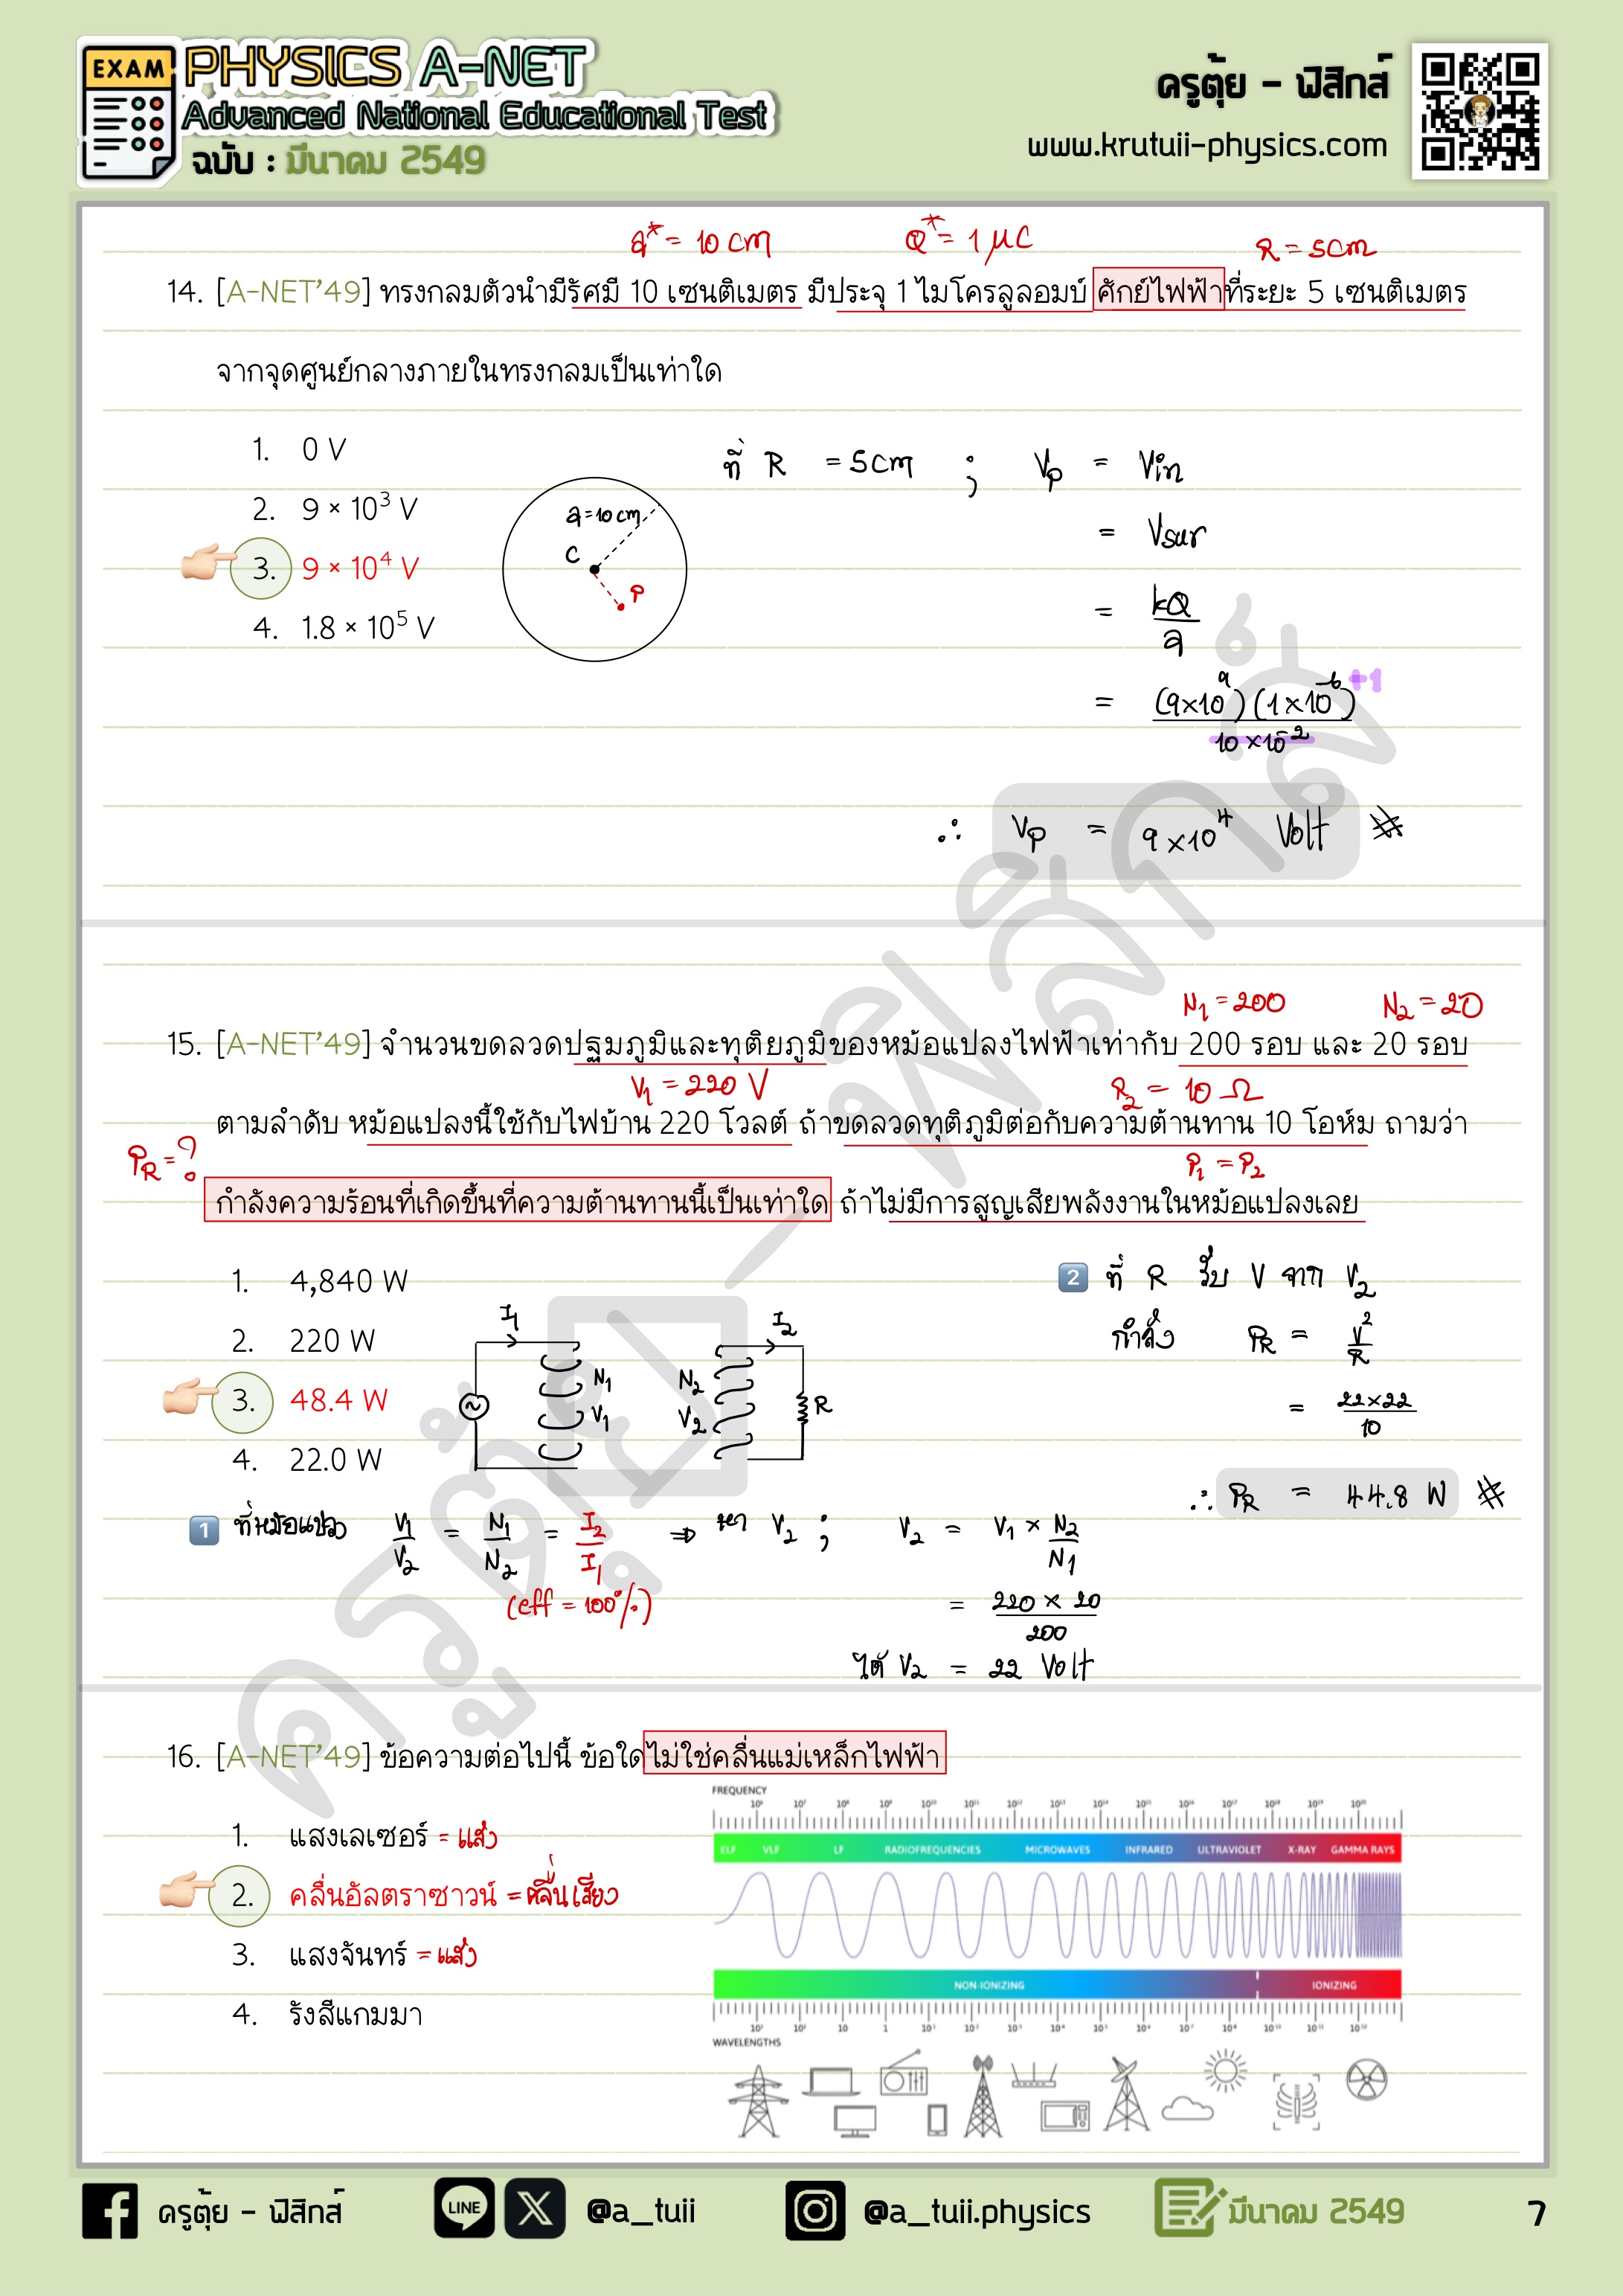 EXAM
PHYSICS A-NET
Advanced National Educational Test
ฉบับ : มีนาคม 2549
ครูตุ้ย - ฟิสิกส์
www.krutuii-physics.com
a* = 10 cm
Q* = 1 μC
R = 5cm
14. [A-NET'49] ทรงกลมตัวนำมีรัศมี 10 เซนติเมตร มีประจุ 1 ไมโครลูลอมบ์ ศักย์ไฟฟ้าที่ระยะ 5 เซนติเมตร
จากจุดศูนย์กลางภายในทรงกลมเป็นเท่าใด
1. 0 V
2. 9 × 10³ V
3. 9 × 10⁴ V
4. 1.8 × 10⁵ V
a = 10 cm
C
P
ที่ R = 5cm ; Vp = Vin
= Vsur
= kQ/a
= (9×10⁹)(1×10⁻⁶)/10×10⁻² +1
∴ Vp = 9×10⁴ Volt #
N₁ = 200 N₂ = 20
15. [A-NET'49] จำนวนขดลวดปฐมภูมิและทุติยภูมิของหม้อแปลงไฟฟ้าเท่ากับ 200 รอบ และ 20 รอบ
V₁ = 220 V R₂ = 10 Ω
ตามลำดับ หม้อแปลงนี้ใช้กับไฟบ้าน 220 โวลต์ ถ้าขดลวดทุติภูมิต่อกับความต้านทาน 10 โอห์ม ถามว่า
P_R = ? P₁ = P₂
กำลังความร้อนที่เกิดขึ้นที่ความต้านทานนี้เป็นเท่าใด ถ้าไม่มีการสูญเสียพลังงานในหม้อแปลงเลย
1. 4,840 W
2. 220 W
3. 48.4 W
4. 22.0 W
I₁ N₁ V₁
I₂ N₂ V₂ R
2 ที่ R รับ V จาก V₂
กำลัง P_R = V²/R
= 22×22/10
∴ P_R = 44.8 W #
1 ที่หม้อแปลง V₁/V₂ = N₁/N₂ = I₂/I₁ ⇒ หา V₂ ; V₂ = V₁ × N₂/N₁
(eff = 100%)
= 220 × 20/200
ได้ V₂ = 22 Volt
16. [A-NET'49] ข้อความต่อไปนี้ ข้อใดไม่ใช่คลื่นแม่เหล็กไฟฟ้า
1. แสงเลเซอร์ = แสง
2. คลื่นอัลตราซาวน์ = คลื่นเสียง
3. แสงจันทร์ = แสง
4. รังสีแกมมา
FREQUENCY
10⁶ 10⁷ 10⁸ 10⁹ 10¹⁰ 10¹¹ 10¹² 10¹³ 10¹⁴ 10¹⁵ 10¹⁶ 10¹⁷ 10¹⁸ 10¹⁹ 10²⁰
ELF VLF LF RADIOFREQUENCIES MICROWAVES INFRARED ULTRAVIOLET X-RAY GAMMA RAYS
NON-IONIZING IONIZING
WAVELENGTHS
ครูตุ้ย - ฟิสิกส์
ครูตุ้ย - ฟิสิกส์
LINE
@a_tuii
@a_tuii.physics
มีนาคม 2549
7